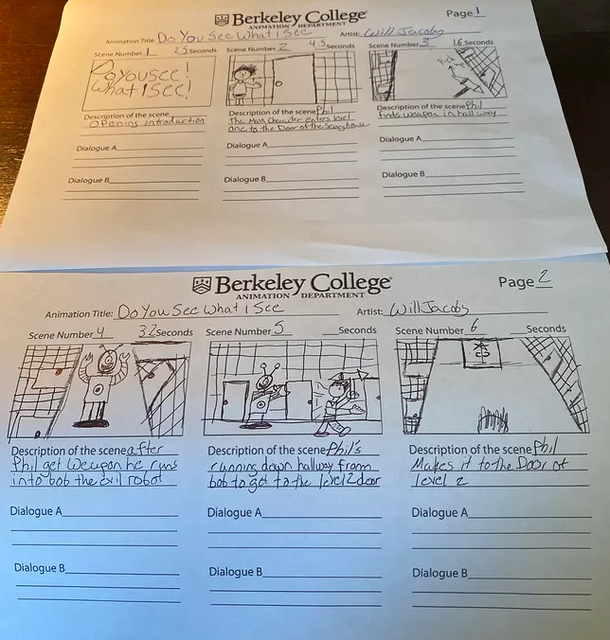 Berkeley College
ANIMATION DEPARTMENT
Page 1
Animation Title: Do You See What i See Artist: Will Jacobs
Scene Number 1 25 Seconds Scene Number 2 45 Seconds Scene Number 3 16 Seconds
Do you see!
What I see!
Description of the scene
Opening introduction
Description of the scene Phil
The Main Character enters level
one to the Door of the
Description of the scene Phil
finds weapon in hallway
Dialogue A
Dialogue A
Dialogue A
Dialogue B
Dialogue B
Dialogue B
Berkeley College
ANIMATION DEPARTMENT
Page 2
Animation Title: Do You See What i See Artist: Will Jacobs
Scene Number 4 32 Seconds Scene Number 5 Seconds Scene Number 6 Seconds
Description of the scene after
Phil get weapon he runs
into bob the evil robot
Description of the scene Phil's
running down hallway from
bob to get to the level 2 door
Description of the scene Phil
Makes it to the Door of
level 2
Dialogue A
Dialogue A
Dialogue A
Dialogue B
Dialogue B
Dialogue B